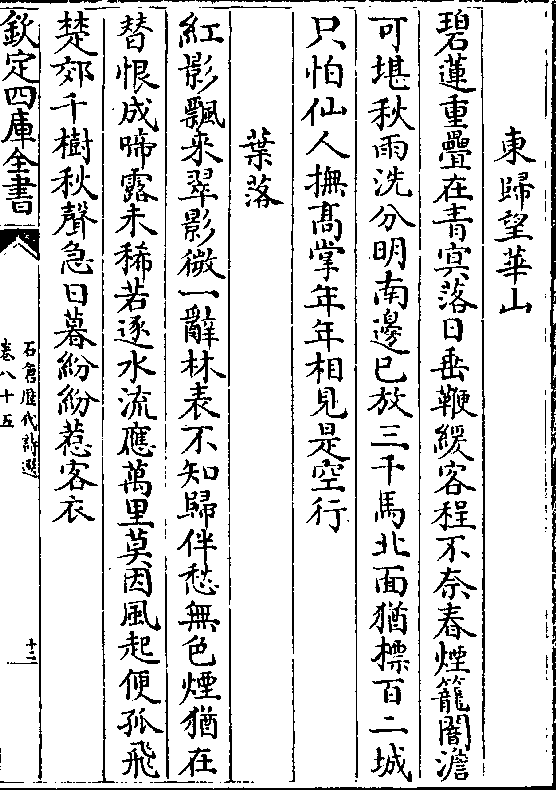 東歸望華山
碧蓮重疊在青冥落日垂鞭緩客程不奈春煙籠闇澹
可堪秋雨洗分明南邊已放三千馬北面猶標百二城
只怕仙人撫高掌年年相見是空行
葉落
紅影飄來翠影微一辭林表不知歸伴愁無色煙猶在
替恨成啼露未稀若逐水流應萬里莫因風起便孤飛
楚郊千樹秋聲急日暮紛紛惹客衣
欽定四庫全書
石倉歷代詩選
卷八十五
十二